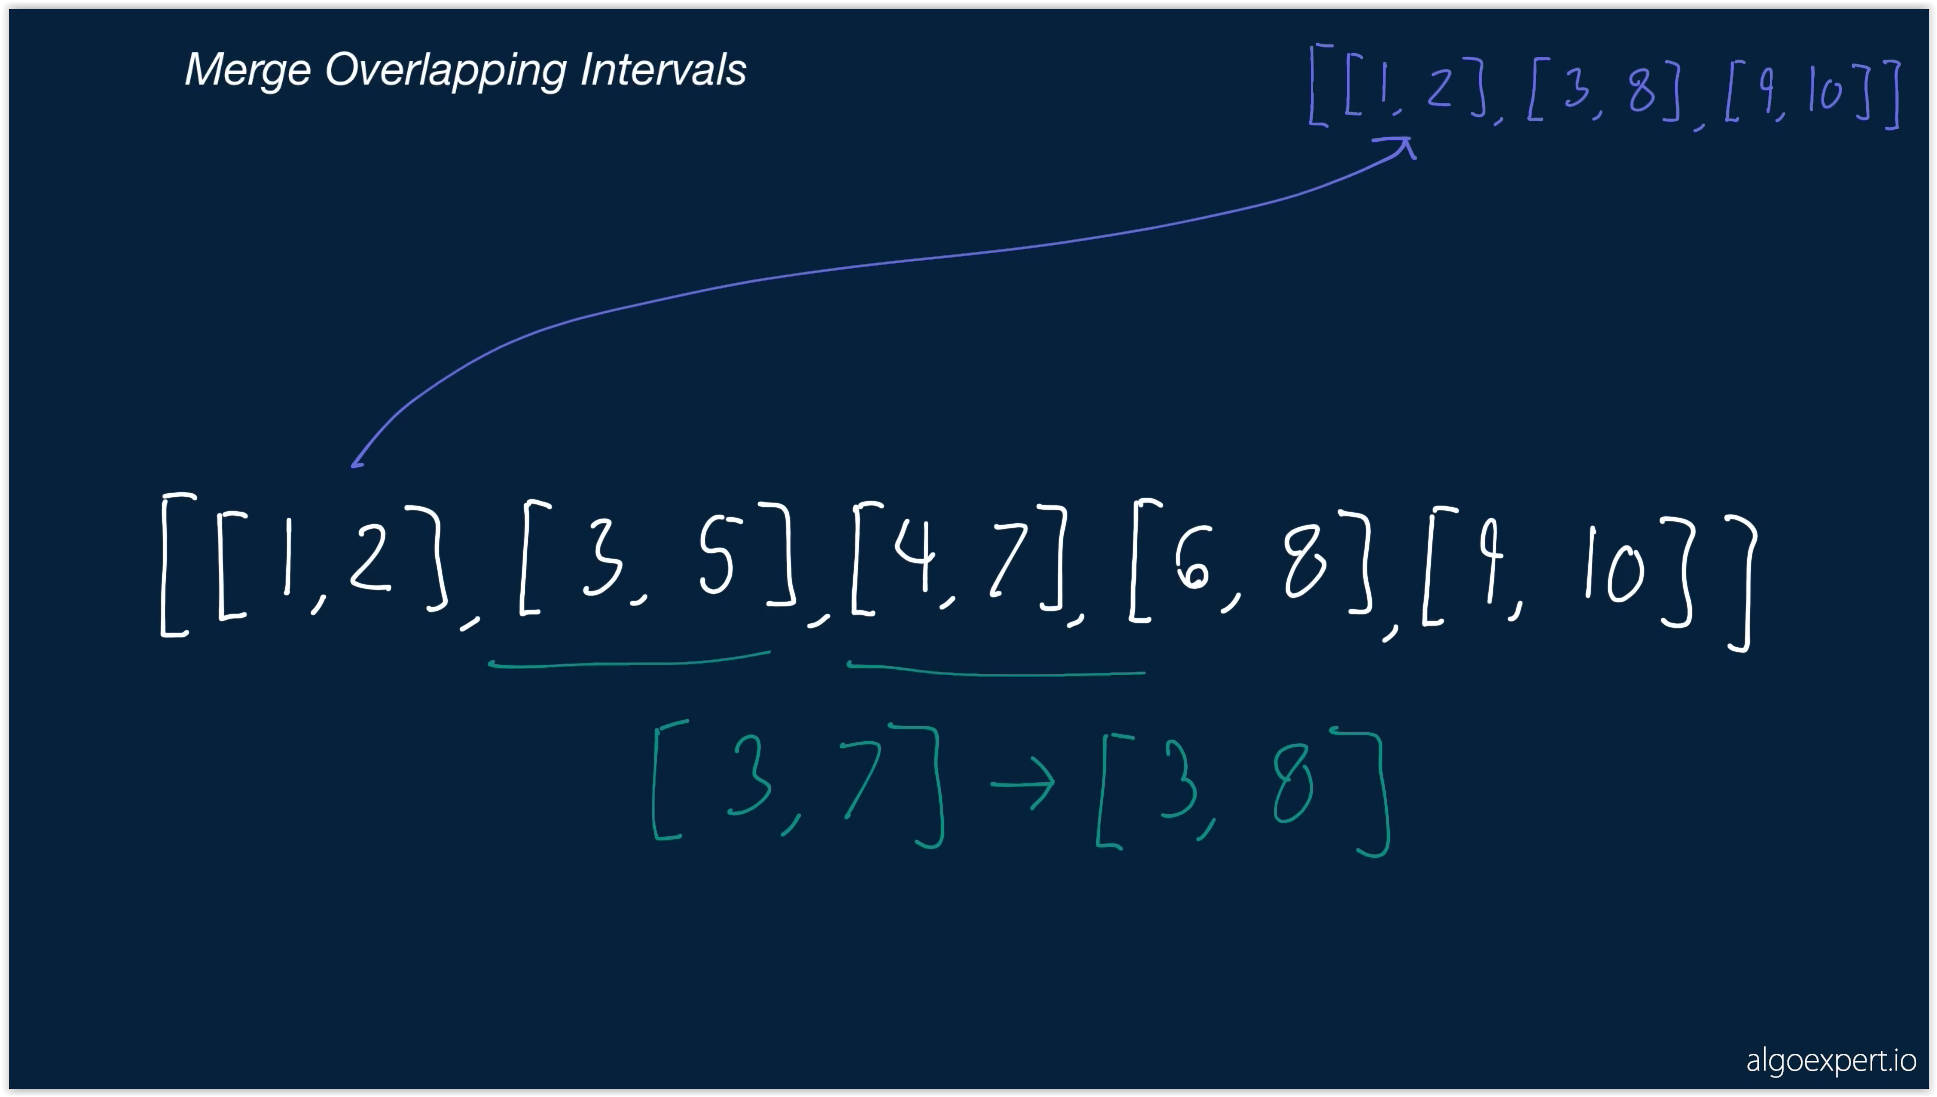 Merge Overlapping Intervals
[[1, 2], [3, 8], [9, 10]]
[[1,2], [3, 5], [4,7], [6, 8], [9, 10]]
[3, 7] → [3, 8]
algoexpert.io